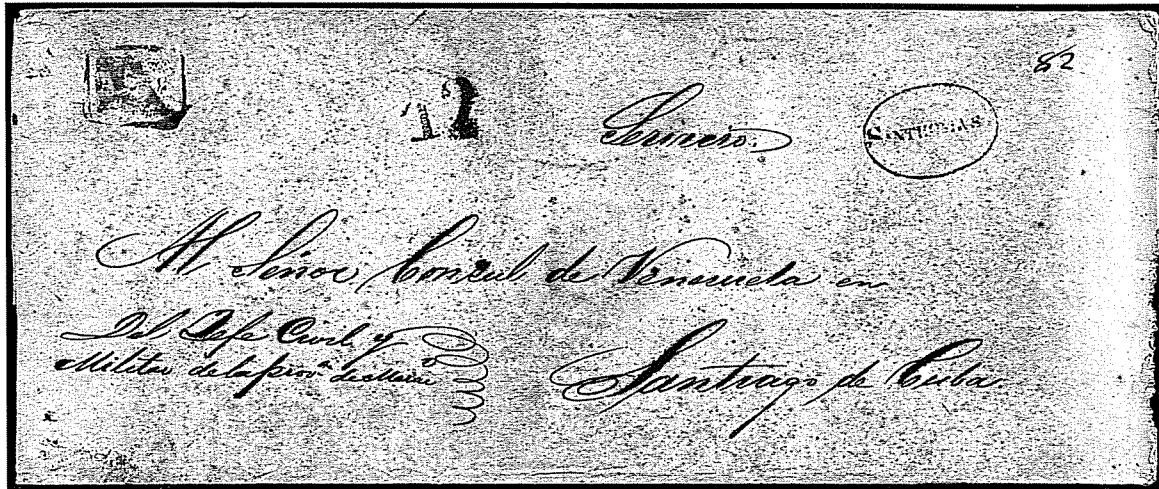 82
12
Servicio.
Al Señor Consul de Venezuela en
Del Jefe Civil y
Militar de la prov.ª de
Santiago de Cuba.